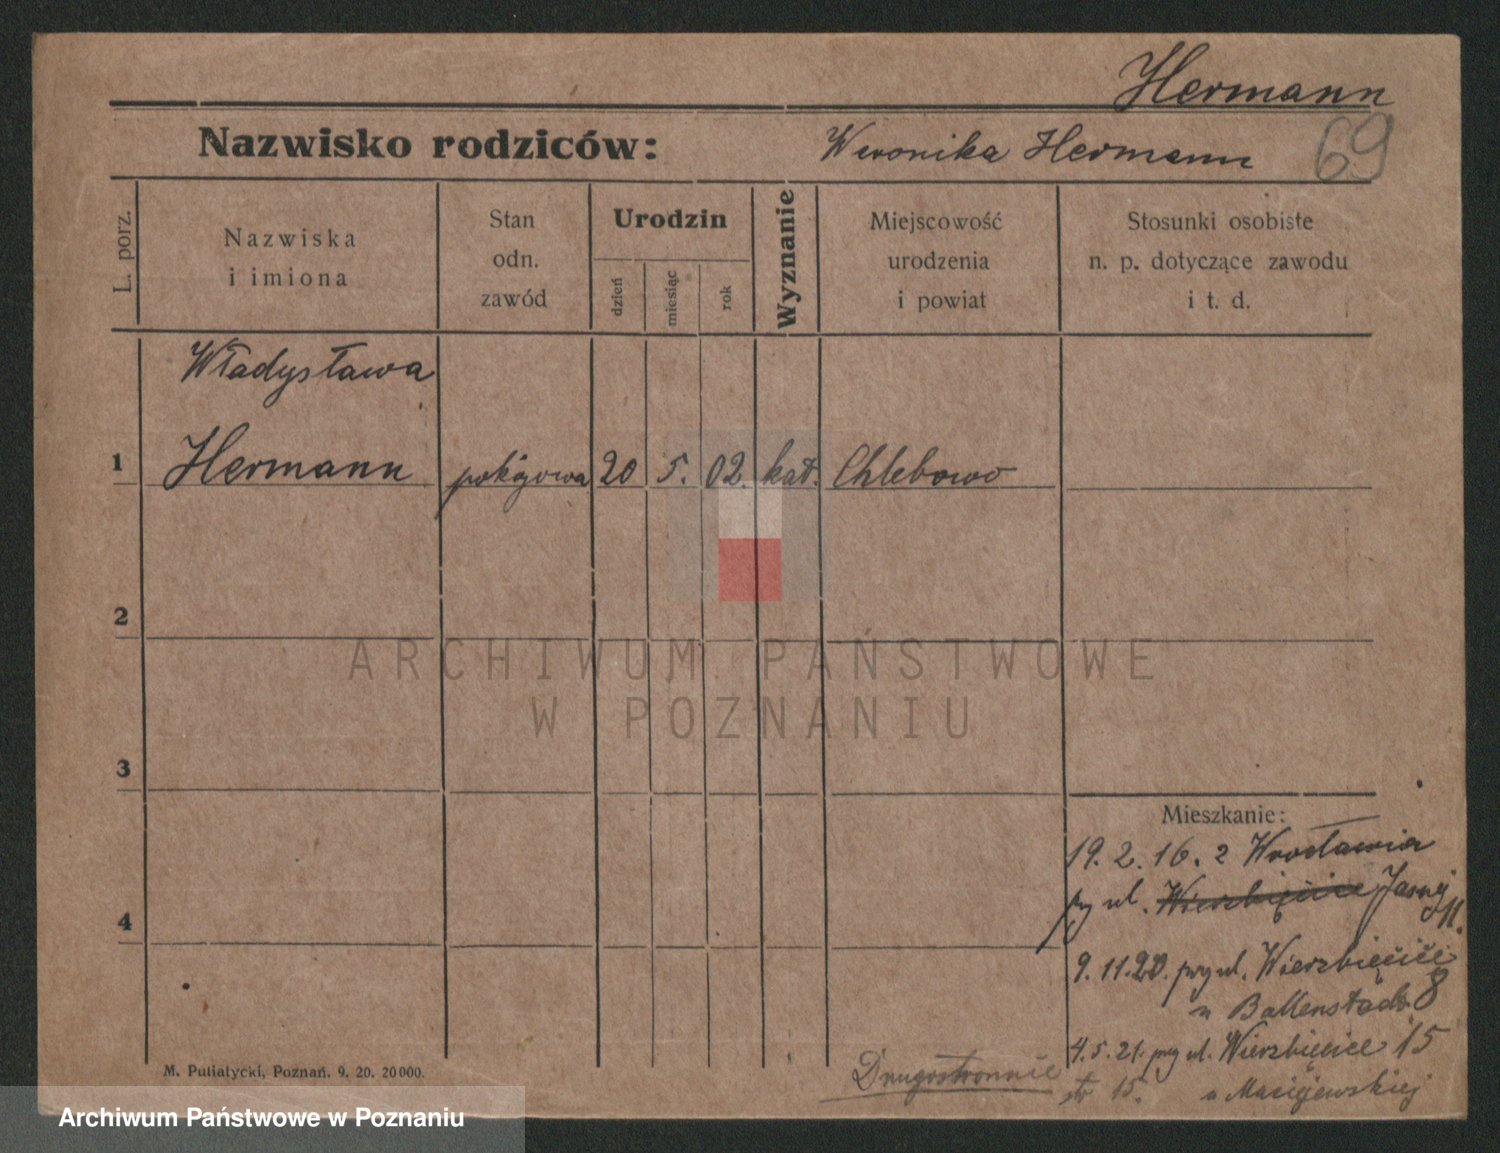 Hermann
Nazwisko rodziców: Weronika Hermann 69
L. porz.
Nazwiska
i imiona
Stan
odn.
zawód
Urodzin
dzień
miesiąc
rok
Wyznanie
Miejscowość
urodzenia
i powiat
Stosunki osobiste
n. p. dotyczące zawodu
i t. d.
Władysława
1 Hermann pokojowa 20 5. 02. kat. Chlebowo
2
ARCHIWUM PAŃSTWOWE
W POZNANIU
3
Mieszkanie:
19. 2. 16. z Wrocławia
przy ul. Wierzbięcice Jasnej 11.
4
9. 11. 20. przy ul. Wierzbięcice 8
u Ballenstädt
4. 5. 21. przy ul. Wierzbięcice 15
Drugostronnie
15. u Maciejewskiej
M. Putiatycki, Poznań. 9. 20. 20000.
Archiwum Państwowe w Poznaniu